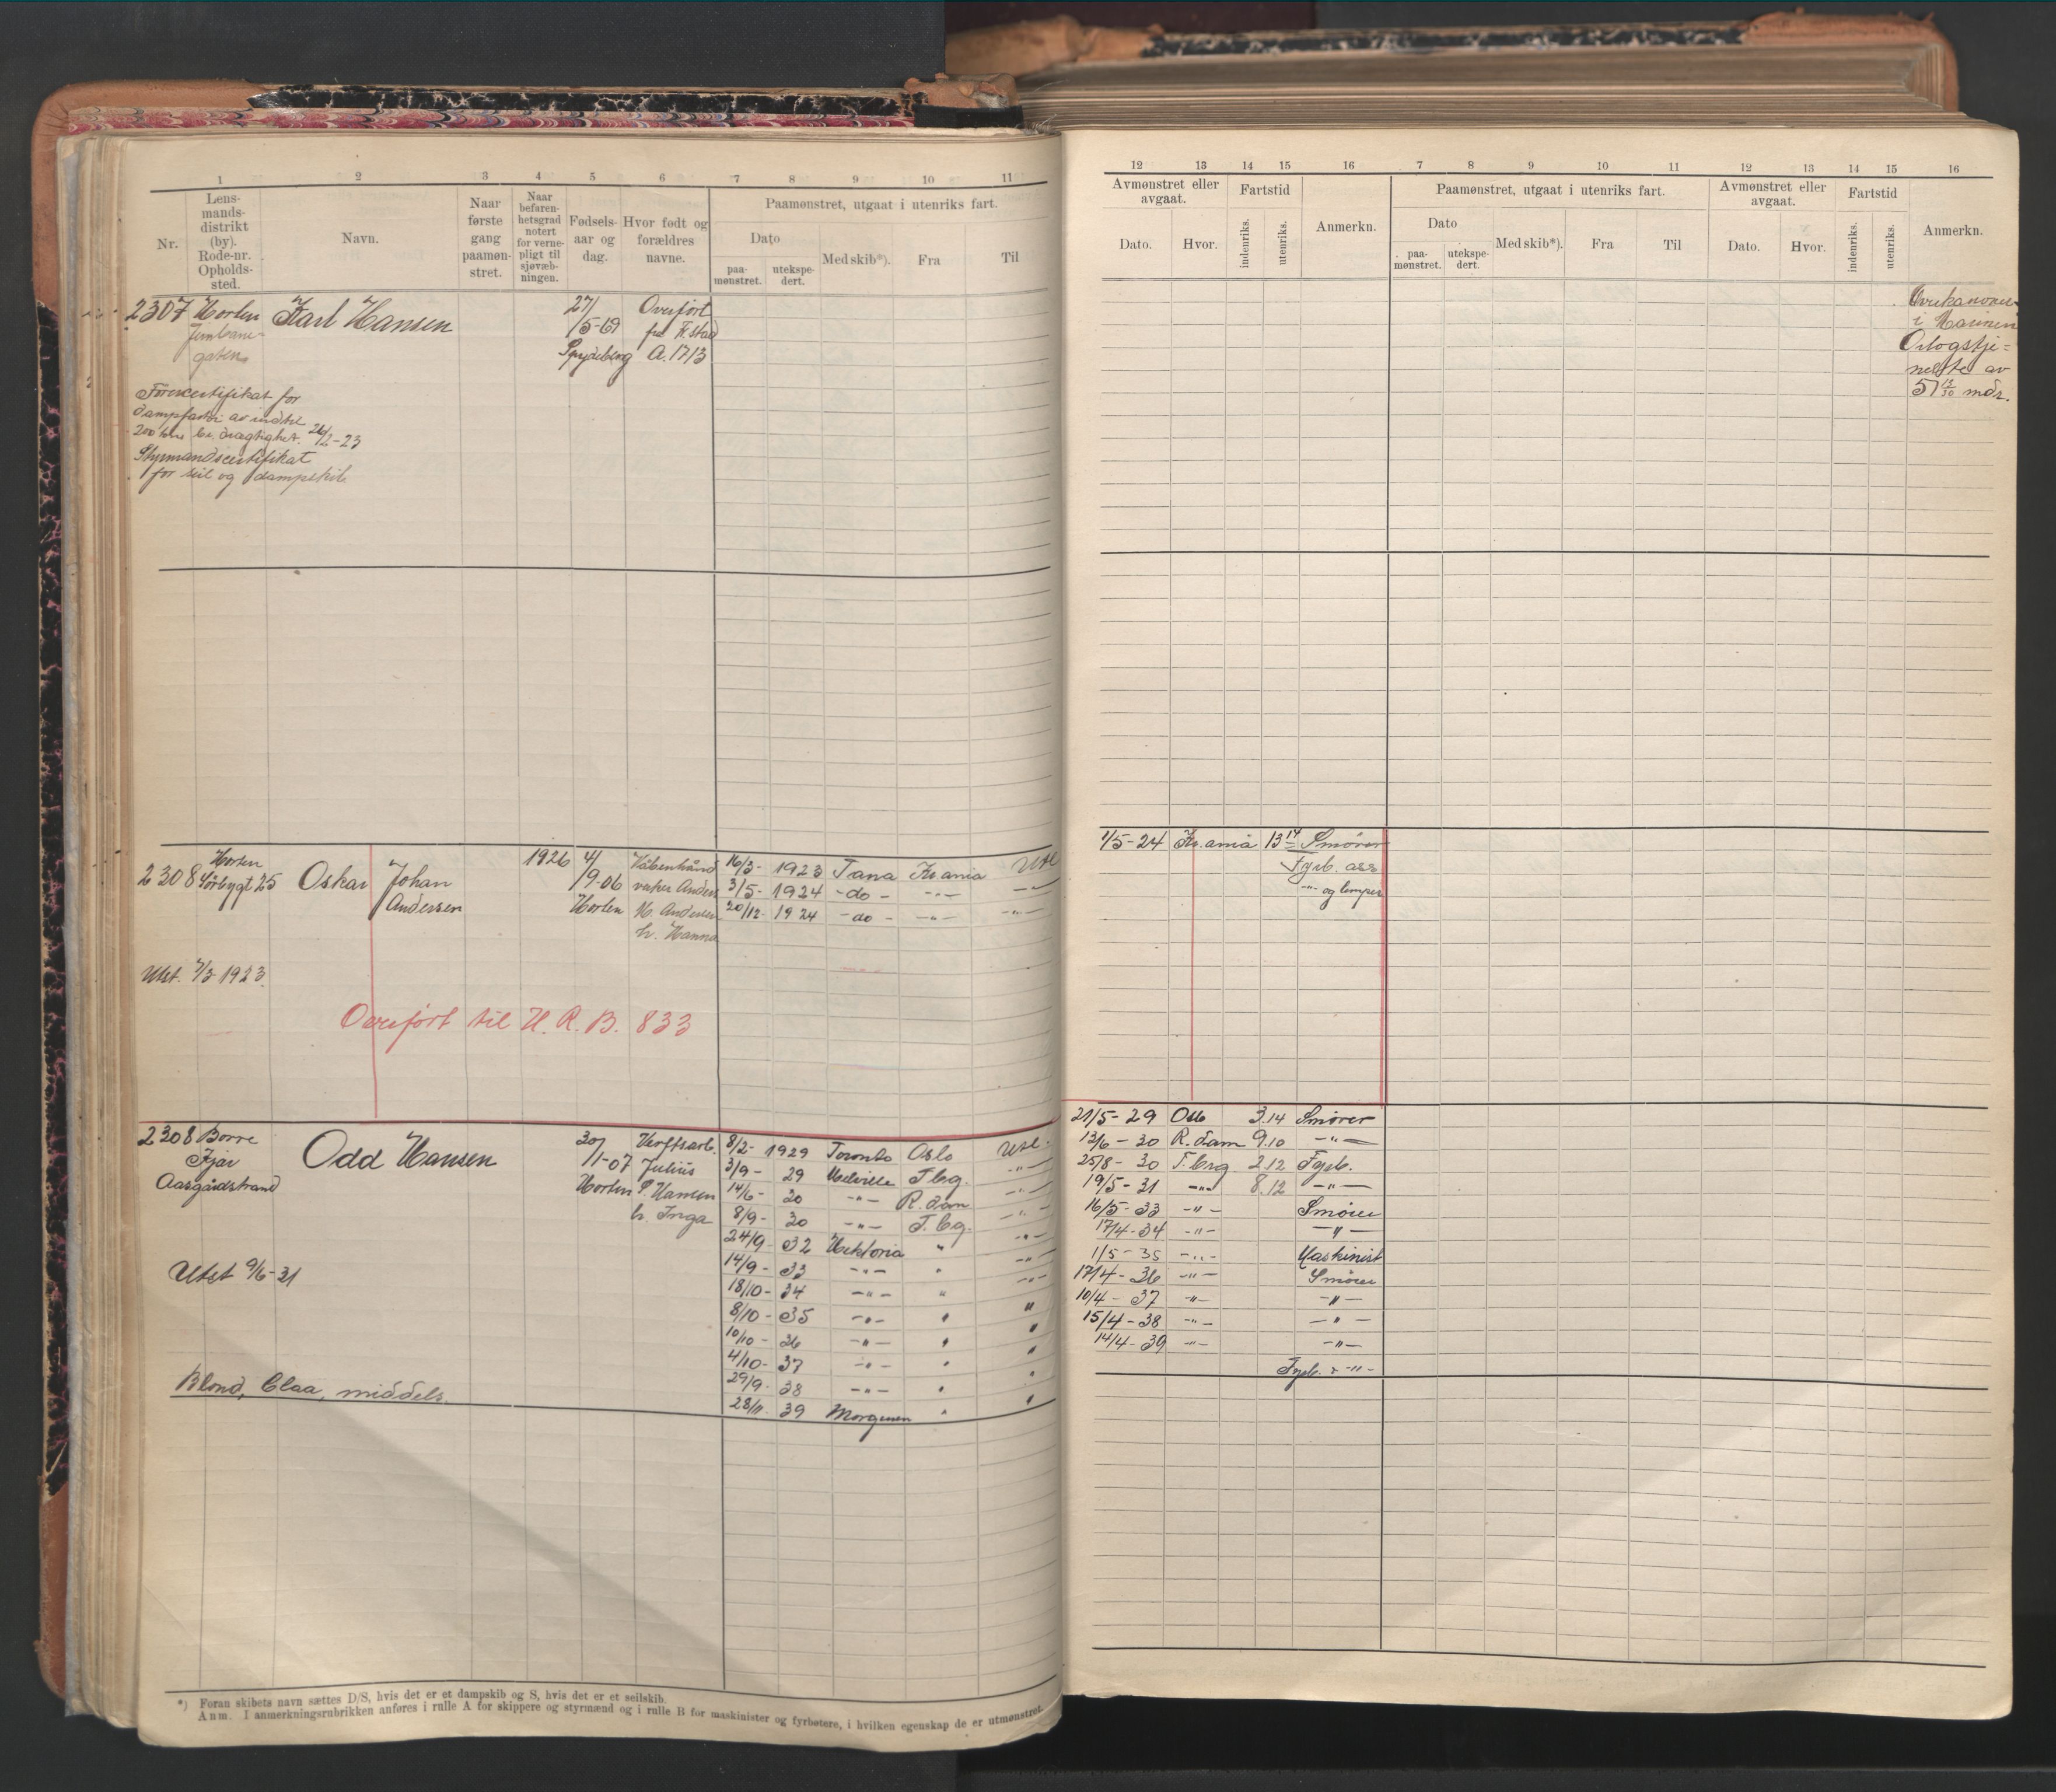 1 2 3 4 5 6 7 8 9 10 11
Nr.
Lens-
mands-
distrikt
(by).
Rode-nr.
Opholds-
sted.
Navn.
Naar
første
gang
paamøn-
stret.
Naar
befaren-
hetsgrad
notert
for verne-
pligt til
sjøvæb-
ningen.
Fødsels-
aar og
dag.
Hvor født og
forældres
navne.
Paamønstret, utgaat i utenriks fart.
Dato
paa-
mønstret.
utekspe-
dert.
Med skib*).
Fra
Til
2307 Horten Karl Hansen 27/ Overført
Jernbane- /5-69 fra Fr.stad
gaten Spydeberg A. 1713
Førercertifikat for
dampfartøi av indtil
200 tons br. drægtighet. 26/2-23
Styrmandscertifikat
for seil og dampskib
2308 Horten Oskar Johan 1926 4/ 16/3- 1923 Tana Kr.ania Utl
Sørbygt 25 Andersen /9-06 3/5- 1924 -do- -"- -"-
Horten H. Andersen 20/12- 1924 -do- -"- -"-
h. Hanna
Utst. 7/3 1923.
Overført til H. R. B. 833
2308 Borre Odd Hansen 30/ Verftsarb. 8/2- 1929 Toronto Oslo Utl-
/1-07 Julius 3/9- 29 Melville T.bg. -"-
Aasgårdstrand Horten P. Hansen 14/6- 30 -"- R.dam -"-
h. Inga 8/9- 30 -"- T.bg. -"-
24/9- 32 Viktoria " -"-
14/9- 33 -"- " -"-
Utst 9/6-31
18/10- 34 -"- " -"-
8/10- 35 -"- " "
10/10- 36 -"- " "
4/10- 37 -"- " "
29/9- 38 -"- " "
Blond, blaa, middels.
28/11- 39 "
*) Foran skibets navn sættes D/S, hvis det er et dampskib og S, hvis det er et seilskib.
Anm. I anmerkningsrubrikken anføres i rulle A for skippere og styrmænd og i rulle B for maskinister og fyrbøtere, i hvilken egenskap de er utmønstret.
12 13 14 15 16 7 8 9 10 11 12 13 14 15 16
Avmønstret eller
avgaat.
Dato.
Hvor.
Fartstid
indenriks.
utenriks.
Anmerkn.
Paamønstret, utgaat i utenriks fart.
Dato
paa-
mønstret.
utekspe-
dert.
Med skib*).
Fra
Til
Avmønstret eller
avgaat.
Dato.
Hvor.
Fartstid
indenriks.
utenriks.
Anmerkn.
i Marinen
Orlogstje-
neste av
51 12/30 mdr.
1/5-24 Kr.ania 13 14 Smører
Fyrb. ass
-"- og lemper
21/5-29 Oslo 3.14 Smører
13/6-30 R.dam 9.10 -"-
25/8-30 T.brg 2.12 Fyrb.
19/5-31 -"- 8.12 -"-
16/5-33 -"- Smører
17/4-34 -"- -"-
1/5-35 -"- Maskinist
17/4-36 -"- Smører
10/4-37 -"- -"-
15/4-38 -"- -"-
14/4-39 -"- -"-